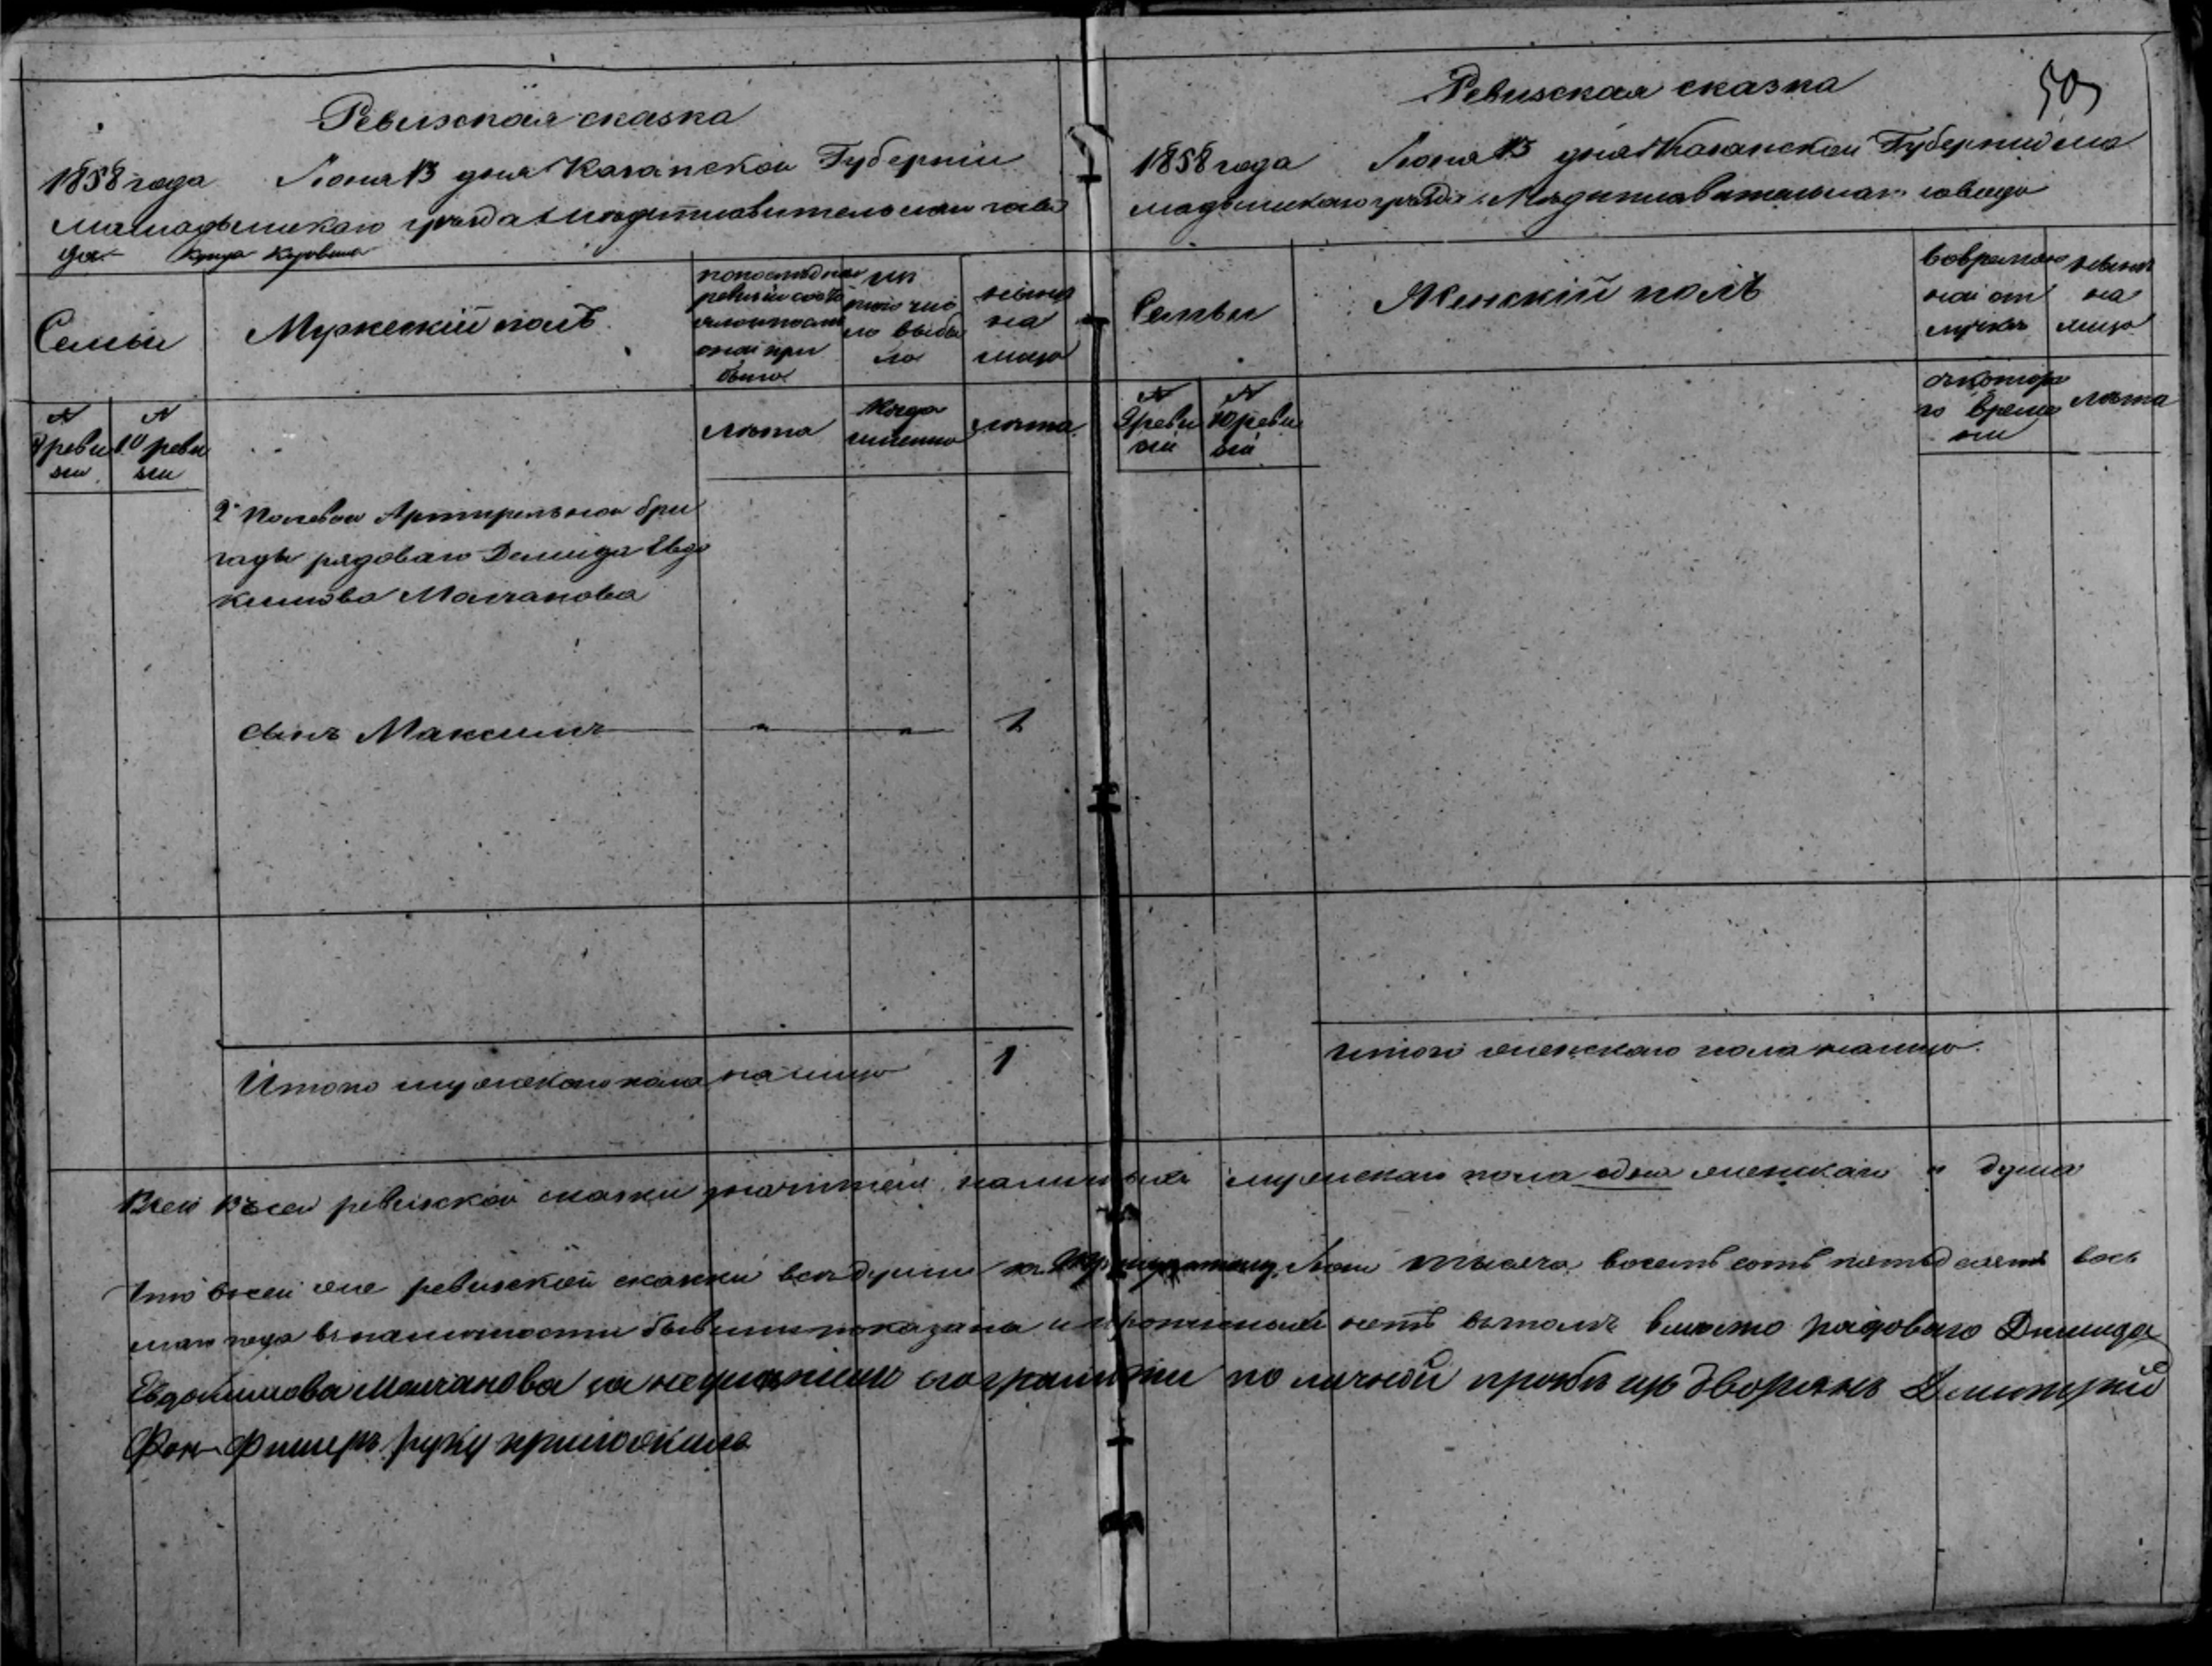 Ревизская сказка
1858 года Июня 13 дня Казанской Губерніи
мамадышскаго уѣзда Медеплавительнаго заво
да Купца Коровина
Семьи
Мужескій полъ
по последней ревизіи состояло и после оной прибыло
Из того число выбыло
ныне на лицо
№ 9 ревизіи
№ 10 ревизіи
лѣта
Когда именно
лѣта
2й Полевой Артирельной бри
гады рядоваго Демида Евдо
кимова Малчанова
сынъ Максимъ " " 1
Итого мужескаго пола на лицо 1
Ревизская сказка
50
1858 года Июня 13 дня Казанской Губерніи ма
мадышскаго уѣзда Медиплавательнаго завода
Семьи
Женскій полъ
во временной отлучкѣ
ныне на лицо
№ 9 ревизіи
№ 10 ревизіи
съ котораго времени
лѣта
итого женскаго пола на лицо
Всего в сей ревизской сказки значится наличныхъ мужескаго пола одна женскаго " душа
Что в сей же ревизской сказки все души к тысяча восемь сотъ пятьдесятъ вось
маго года в наличности бывши показана и прописныхъ нетъ въ томъ вместо рядоваго Демида
Евдокимова Малчанова за неумѣніемъ его грамоты по личной прозбѣ изъ дворянъ Дмитрий
Фон-Фишеръ руку приложилъ